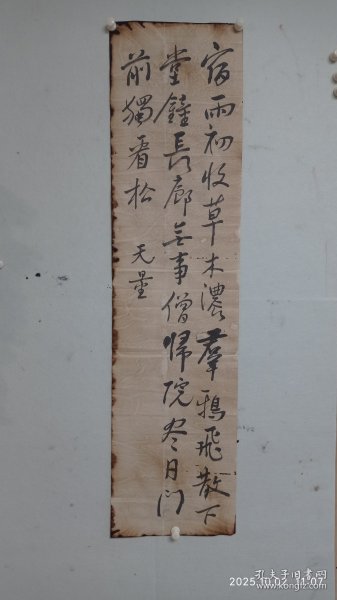 宿雨初收草木濃羣鴉飛散下
堂鐘長廊無事僧歸院尽日门
前獨看松 天量
孔夫子旧书网
2025.10.02 11:07